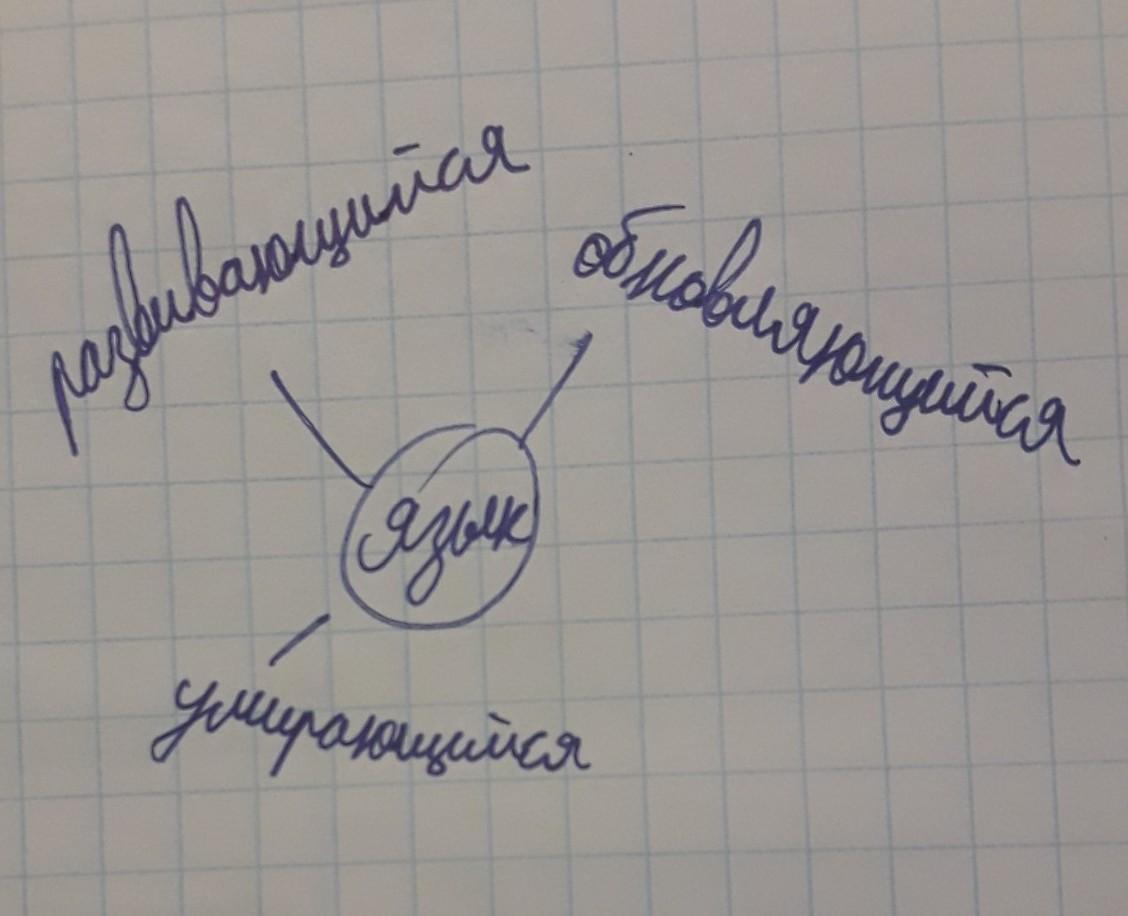 развивающийся
обновляющийся
язык
умирающийся